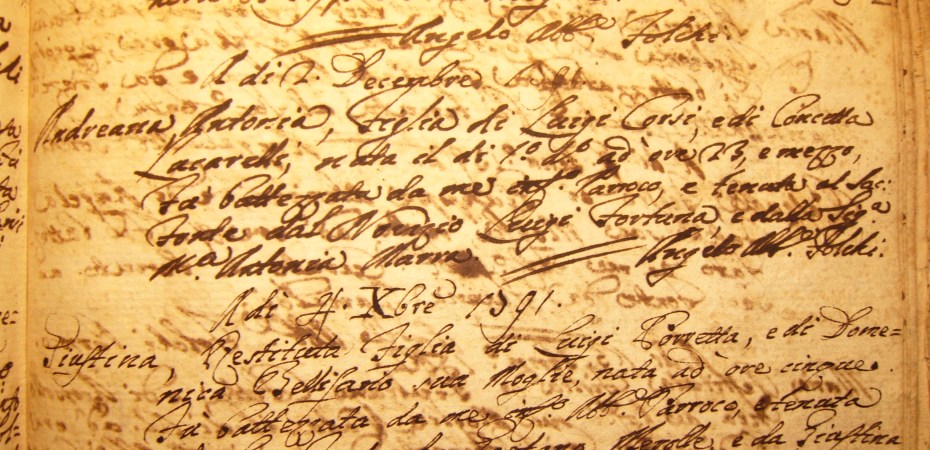 Angelo Abb.e Folchi.
A di 2. Decembre
Andreana Antonia, Figlia di Luigi Corsi, e di Concetta
Lacarelli, nata il di 1.o d.o ad ore 23, e mezzo,
fu battezzata da me inf.o Parroco, e tenuta al Sac:
Fonte dal Luigi Fortuna, e dalla Sig.a
M.a Antonia Marra Angelo Abb.e Folchi.
A di 4. Xbre 1791.
Giustina, Restituta Figlia di Luigi Porretta, e di Dome=
nica Bellisario sua Moglie, nata ad ore cinque.
Fu battezzata da me inf.o Abb.e Parroco, e tenuta
Merolle e da Giustina